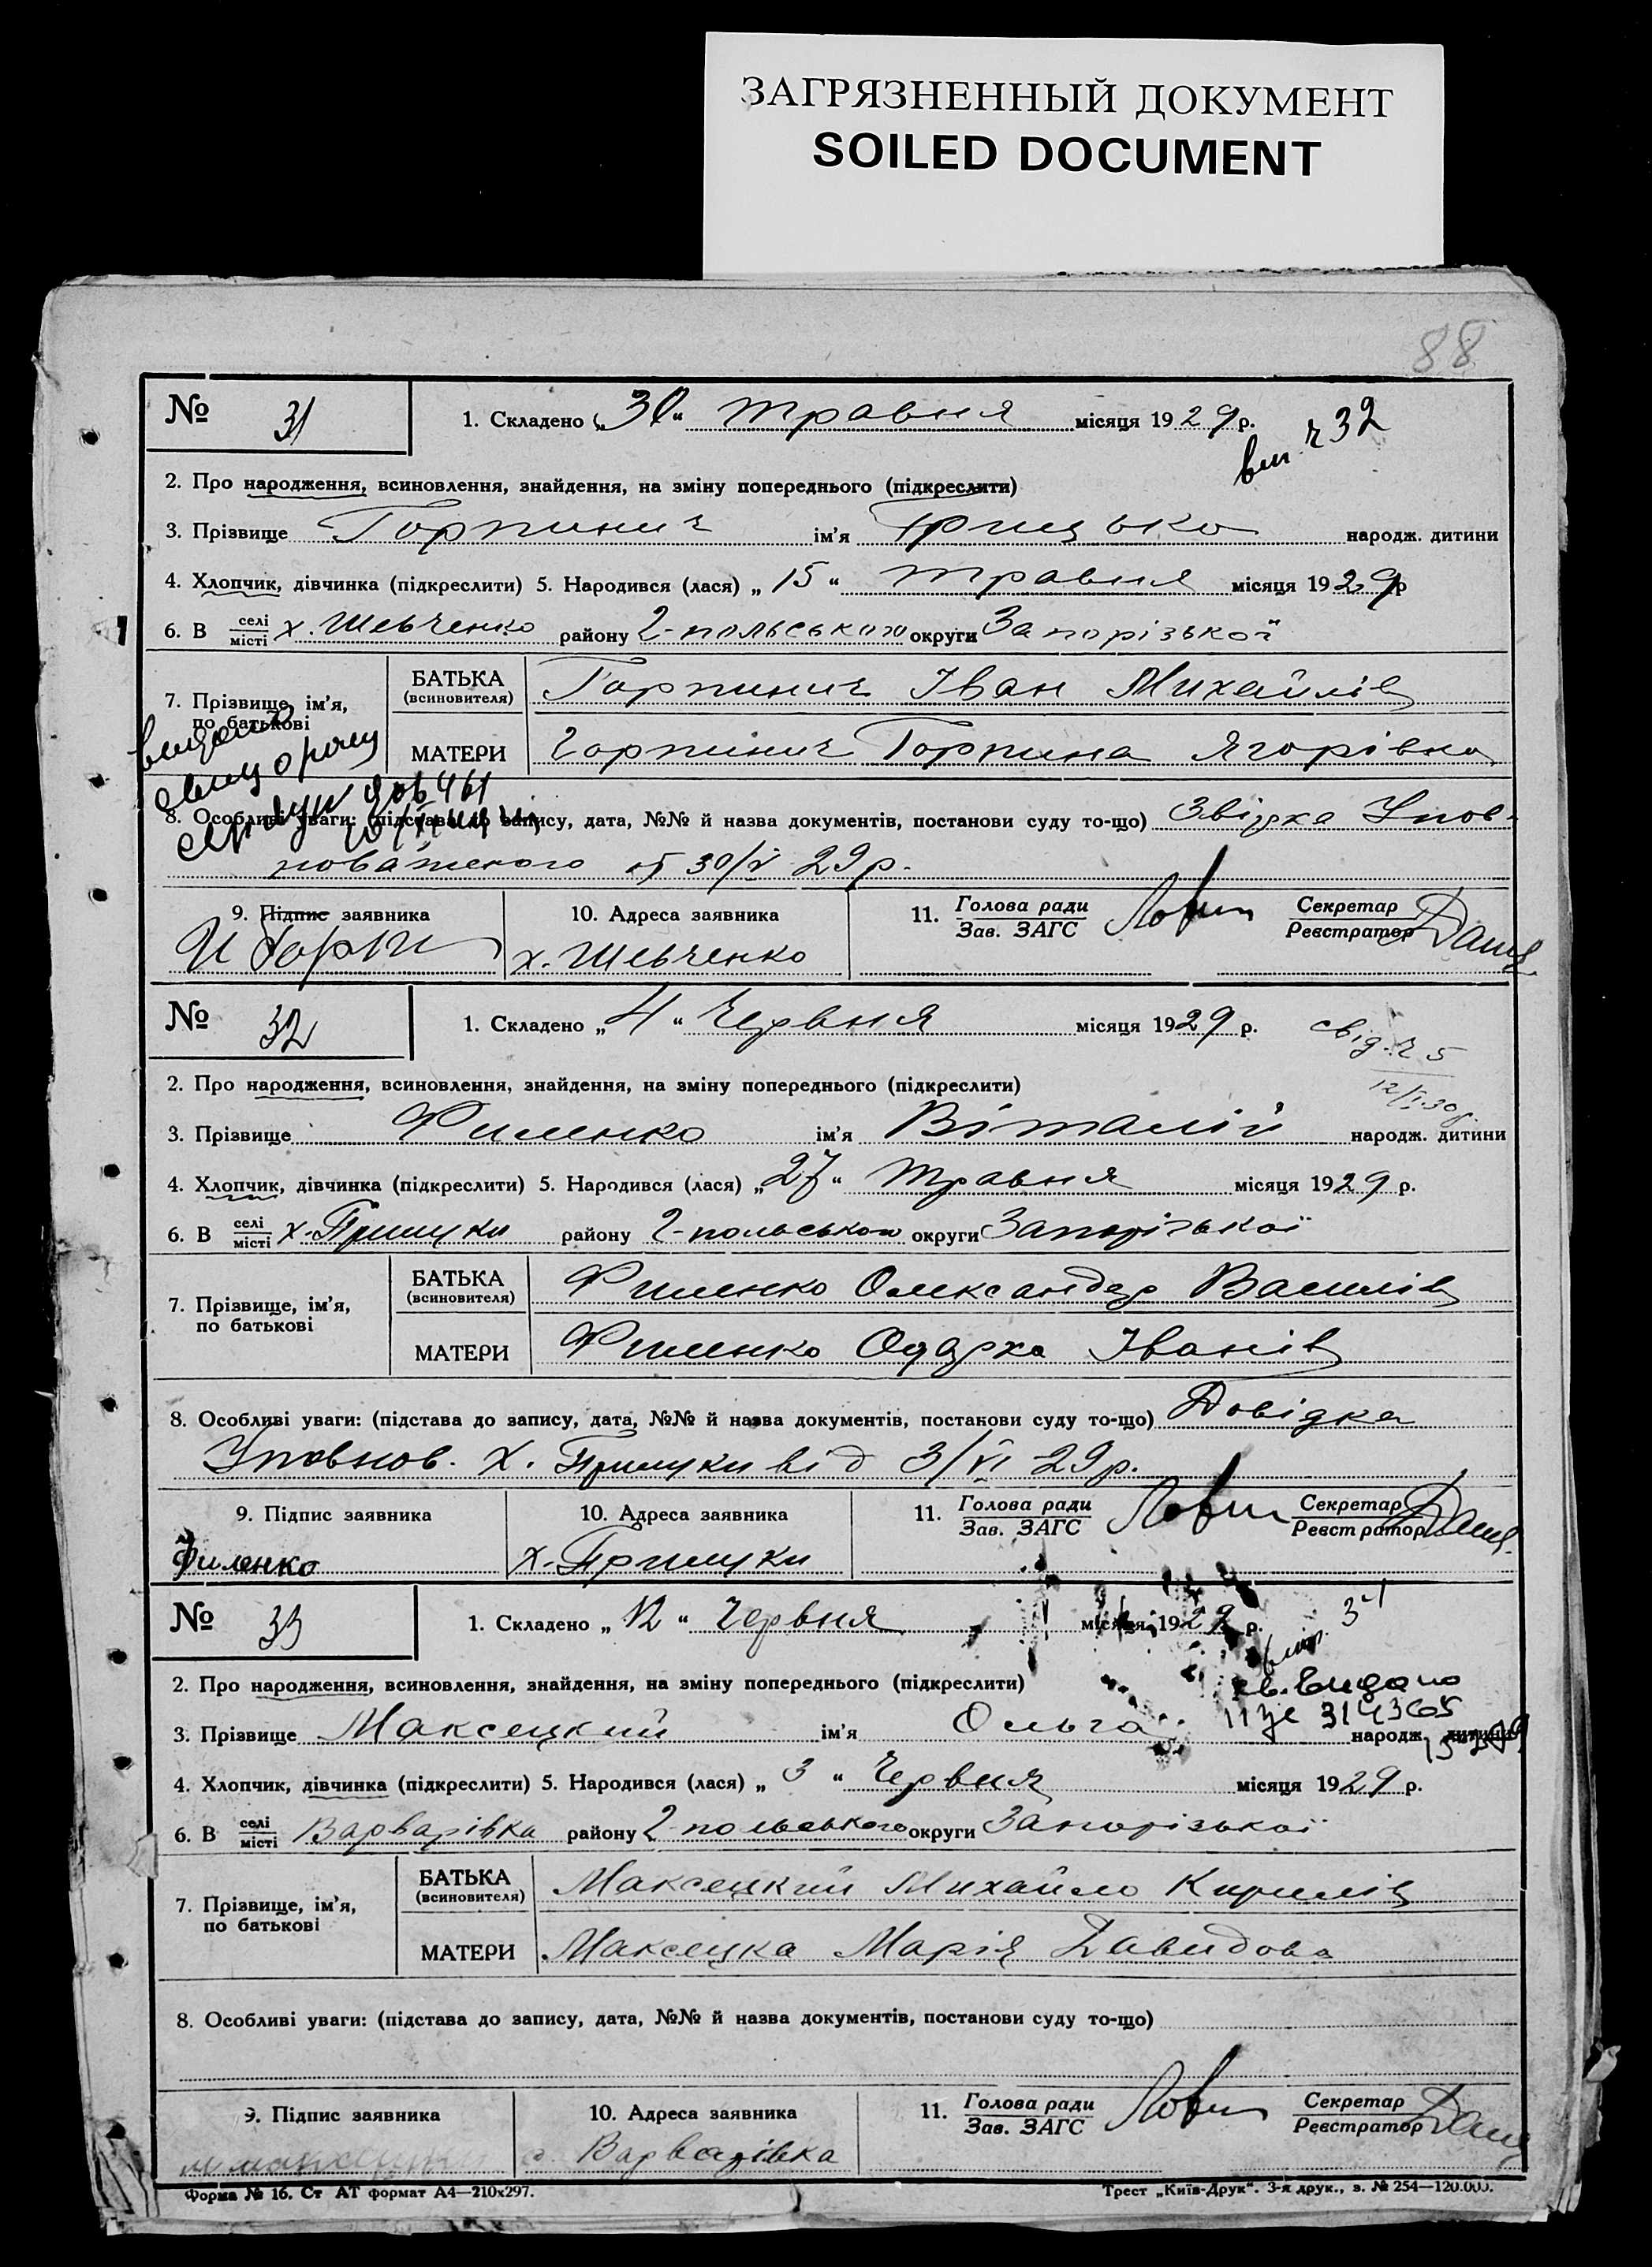 ЗАГРЯЗНЕННЫЙ ДОКУМЕНТ
SOILED DOCUMENT
88
№ 31
1. Складено „30“ травня місяця 1929 р.
вип. ч 32
2. Про народження, всиновлення, знайдення, на зміну попереднього (підкреслити)
3. Прізвище Горпинич ім'я Грицько народж. дитини
4. Хлопчик, дівчинка (підкреслити) 5. Народився (лася) „15“ травня місяця 1929 р
6. В селі/місті х. Шевченко району 2-польського округи Запорізької
7. Прізвище, ім'я, по батькові
БАТЬКА (всиновителя) Горпинич Іван Михайлів
МАТЕРИ Горпинич Горпина Ягорівна
8. Особливі уваги: (підстава до запису, дата, №№ й назва документів, постанови суду то-що) Звідка Упов-
новаженого от 30/V 29 р.
9. Підпис заявника
10. Адреса заявника
11. Голова ради/Зав. ЗАГС
Секретар/Реєстратор
х. Шевченко
№ 32
1. Складено „4“ Червня місяця 1929 р.
свід. ч 5
12/I 30 р.
2. Про народження, всиновлення, знайдення, на зміну попереднього (підкреслити)
3. Прізвище Филенко ім'я Віталій народж. дитини
4. Хлопчик, дівчинка (підкреслити) 5. Народився (лася) „27“ травня місяця 1929 р.
6. В селі/місті х. Прилуки району 2-польського округи Запорізької
7. Прізвище, ім'я, по батькові
БАТЬКА (всиновителя) Филенко Олександер Василів
МАТЕРИ Филенко Одарка Іванів
8. Особливі уваги: (підстава до запису, дата, №№ й назва документів, постанови суду то-що) Довідка
Уповнов. х. Прилуки від 3/VI 29 р.
9. Підпис заявника
10. Адреса заявника
11. Голова ради/Зав. ЗАГС
Секретар/Реєстратор
Филенко
х. Прилуки
№ 33
1. Складено „12“ Червня місяця 1929 р.
2. Про народження, всиновлення, знайдення, на зміну попереднього (підкреслити)
св. видано
3143605
3. Прізвище Максецкий ім'я Ольга народж. дитини
4. Хлопчик, дівчинка (підкреслити) 5. Народився (лася) „3“ Червня місяця 1929 р.
6. В селі/місті Варварівка району 2-польського округи Запорізької
7. Прізвище, ім'я, по батькові
БАТЬКА (всиновителя) Максецкий Михайло Кирилів
МАТЕРИ Максецка Марія Давидова
8. Особливі уваги: (підстава до запису, дата, №№ й назва документів, постанови суду то-що)
9. Підпис заявника
10. Адреса заявника
11. Голова ради/Зав. ЗАГС
Секретар/Реєстратор
Варварівка
Форма № 16. Ст АТ формат А4—210х297.
Трест „Київ-Друк“. 3-я друк., з. № 254—120.000.